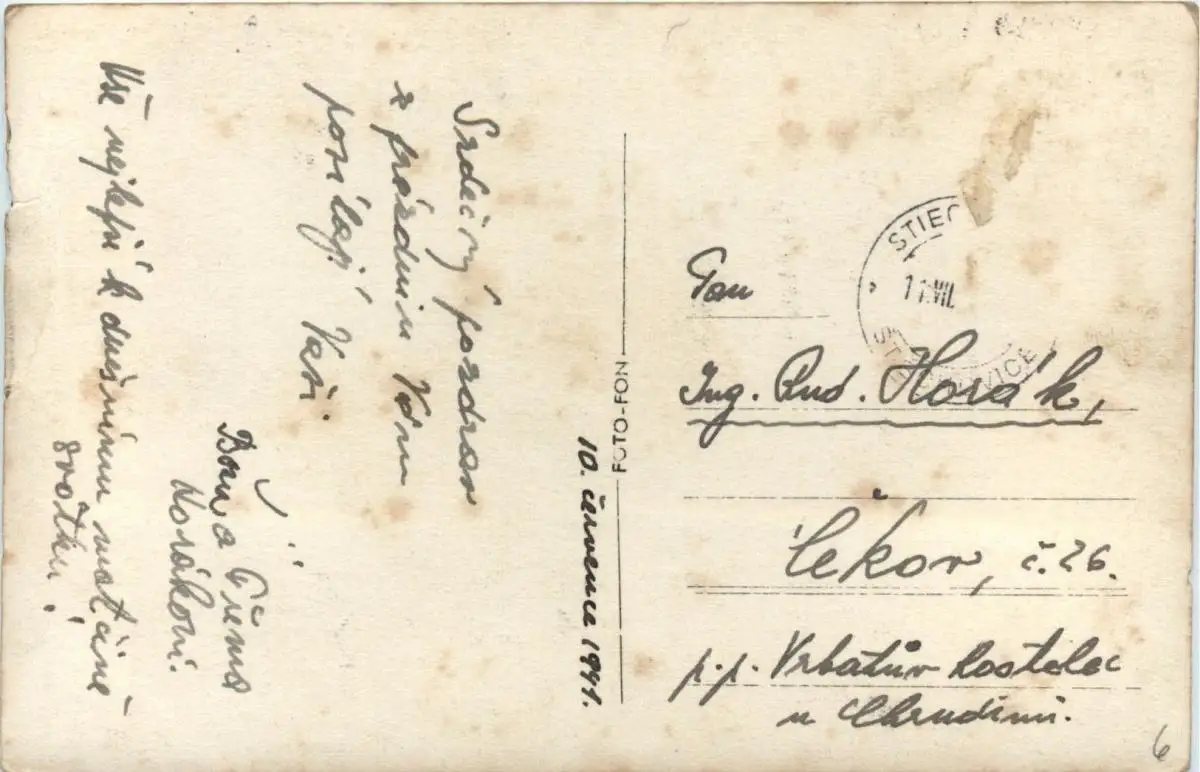 Srdečný pozdrav
z prázdnin Vám
posílají Vaši.
Horákovi.
Vše nejlepší k dnešnímu
svátku!
10. července 1941.
FOTO-FON
Pan
Ing. Rud. Horák,
Lekov, č. 26.
p. p. Vrbatův Kostelec
u Chrudimi.
STIEC
11.VII.
6